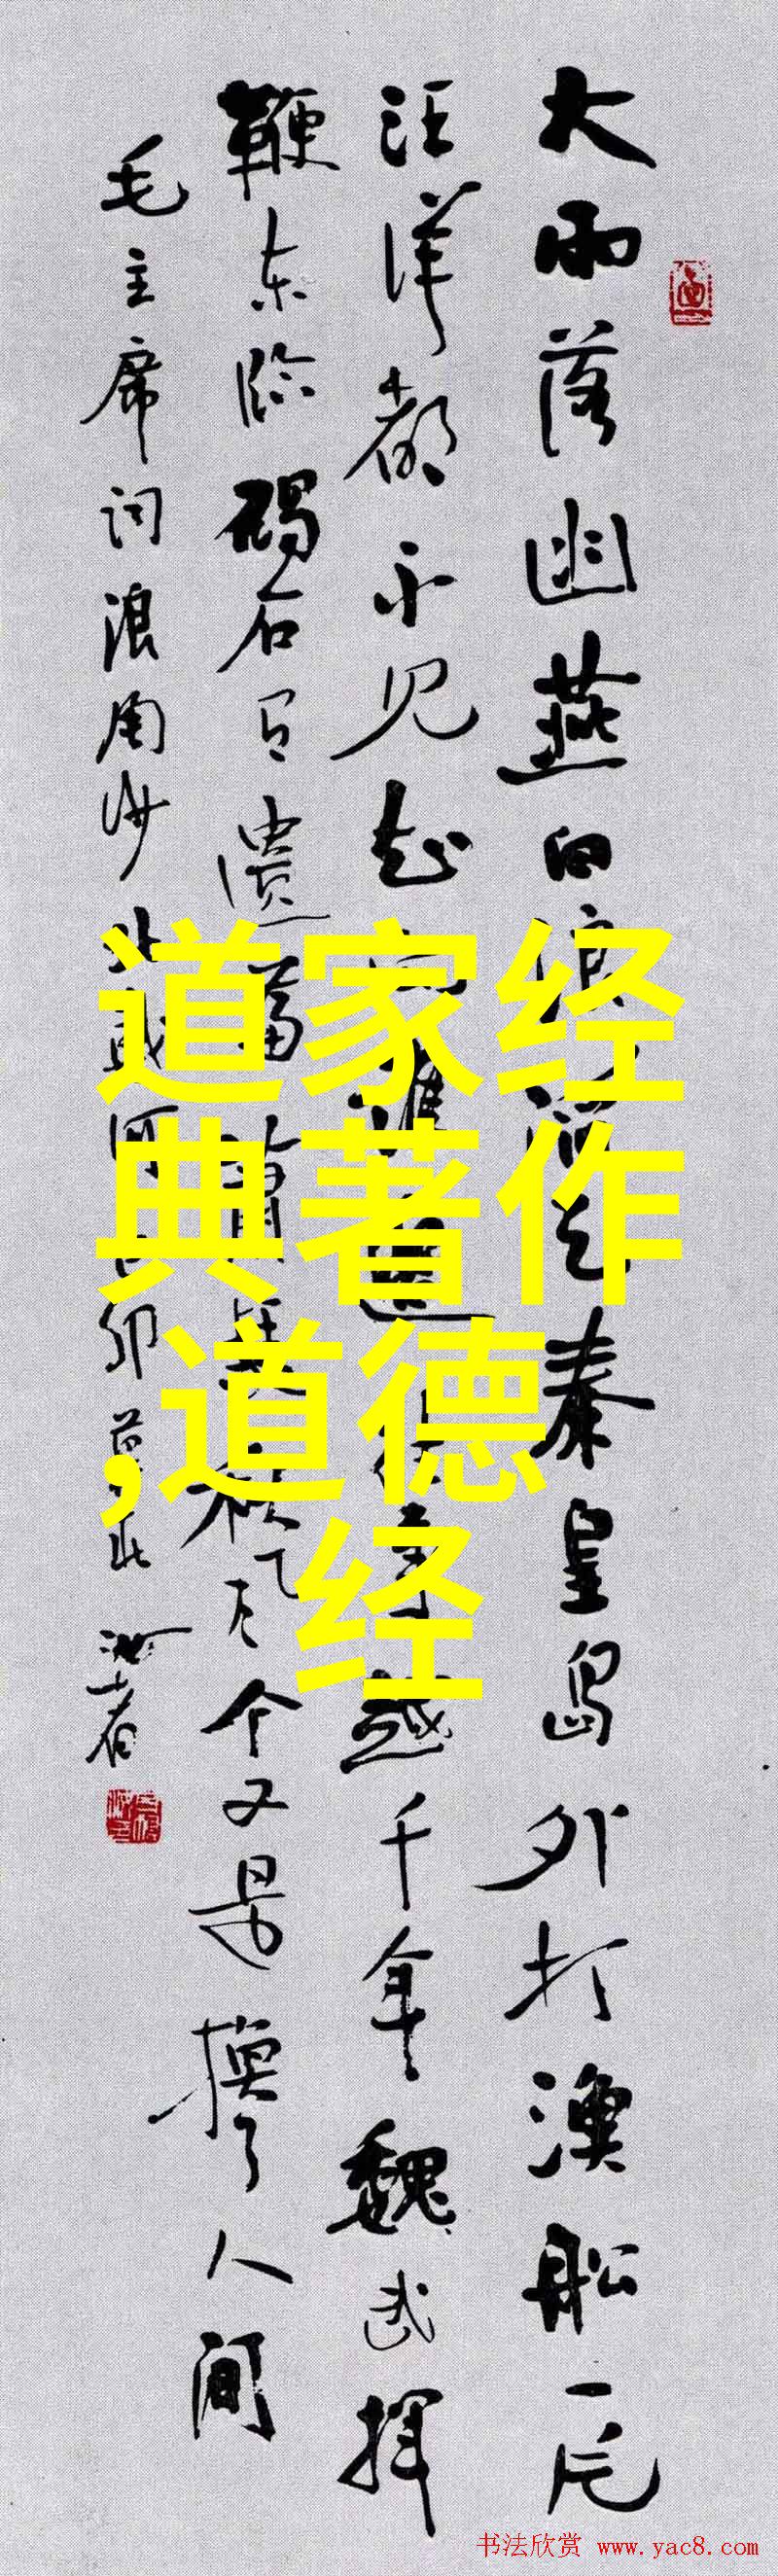 大雨落幽燕白浪滔天秦皇岛外打渔船一片
汪洋都不见知向谁边往事越千年魏武挥
鞭东临碣石有遗篇萧瑟秋风今又是换了人间
毛主席词浪淘沙北戴河
道家经
典著作
,道德
经
书法欣赏 www.yac8.com